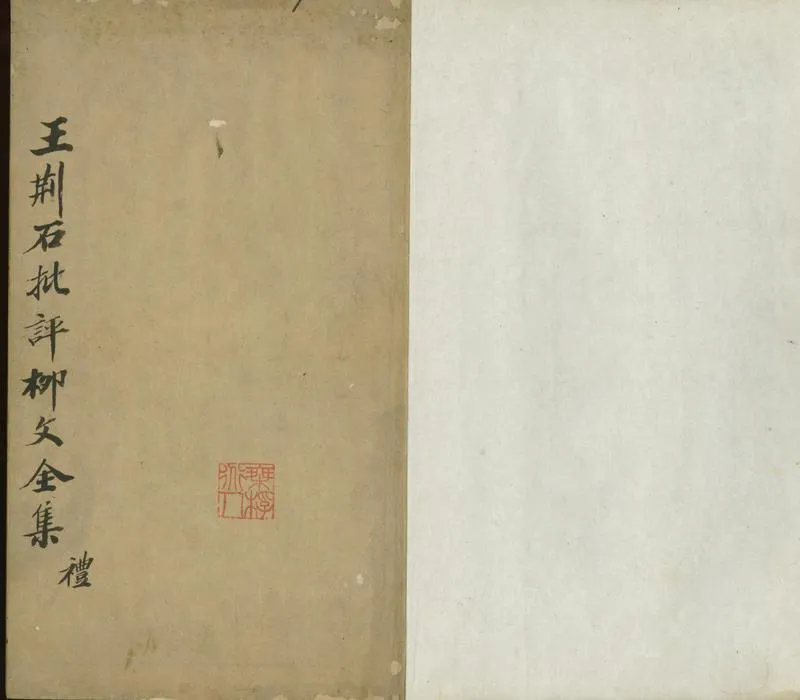 王荆石批評柳文全集
禮